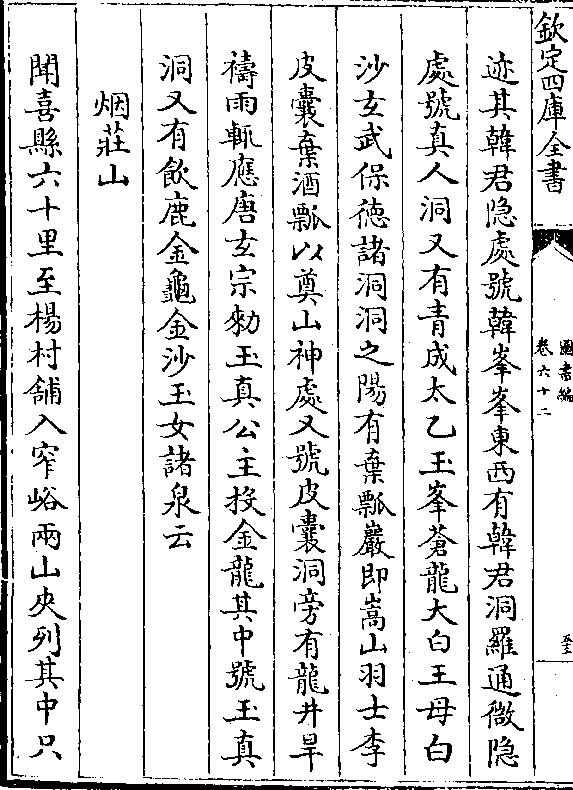 欽定四庫全書
圖書編
卷六十二
迹其韓君隐處號韓峯峯東西有韓君洞羅通微隐
處號真人洞又有青成太乙玉峯蒼龍大白王母白
沙玄武保徳諸洞洞之陽有棄瓢巖即嵩山羽士李
皮囊棄酒瓢以奠山神處又號皮囊洞旁有龍井旱
禱雨輒應唐玄宗勑玉真公主投金龍其中號玉真
洞又有飲鹿金龜金沙玉女諸泉云
烟莊山
聞喜縣六十里至楊村舖入窄峪兩山夾列其中只